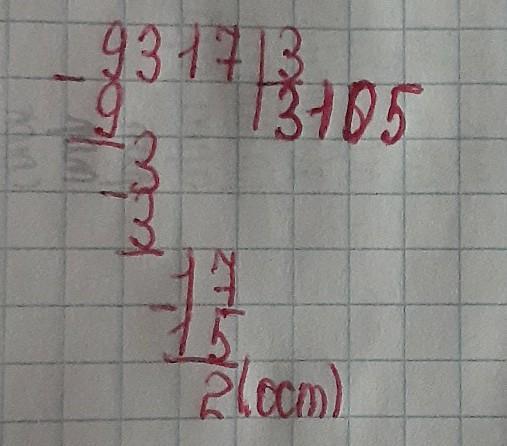 - 9317|3
9 3105
- 3
3
- 17
15
2 (ост)